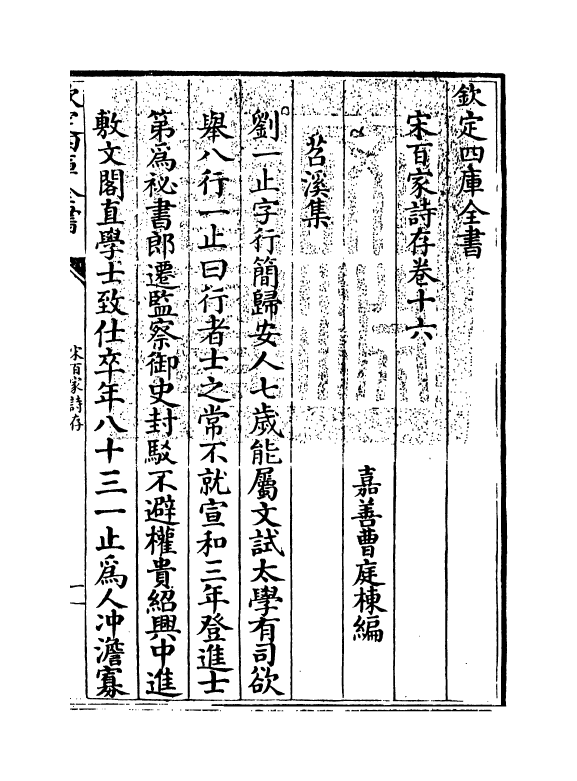 欽定四庫全書
宋百家詩存卷十六
嘉善曹庭棟編
苕溪集
劉一止字行簡歸安人七歲能屬文試太學有司欲
舉八行一止曰行者士之常不就宣和三年登進士
第爲祕書郎遷監察御史封駁不避權貴紹興中進
敷文閣直學士致仕卒年八十三一止爲人冲澹寡
欽定四庫全書
宋百家詩存
一